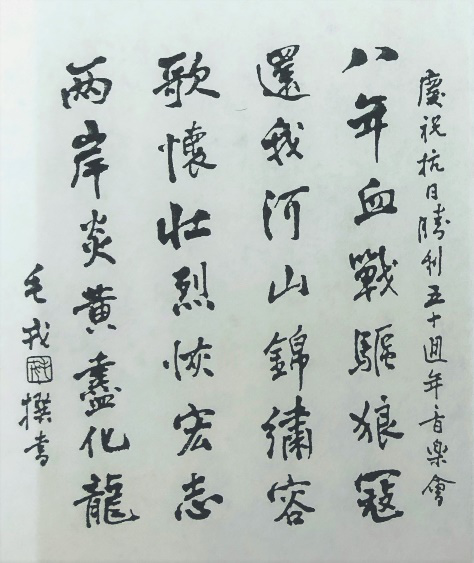 慶祝抗日勝利五十週年音樂會
八年血戰驅狼寇
還我河山錦繡容
歌懷壯烈恢宏志
兩岸炎黃盡化龍
毛戎 撰書